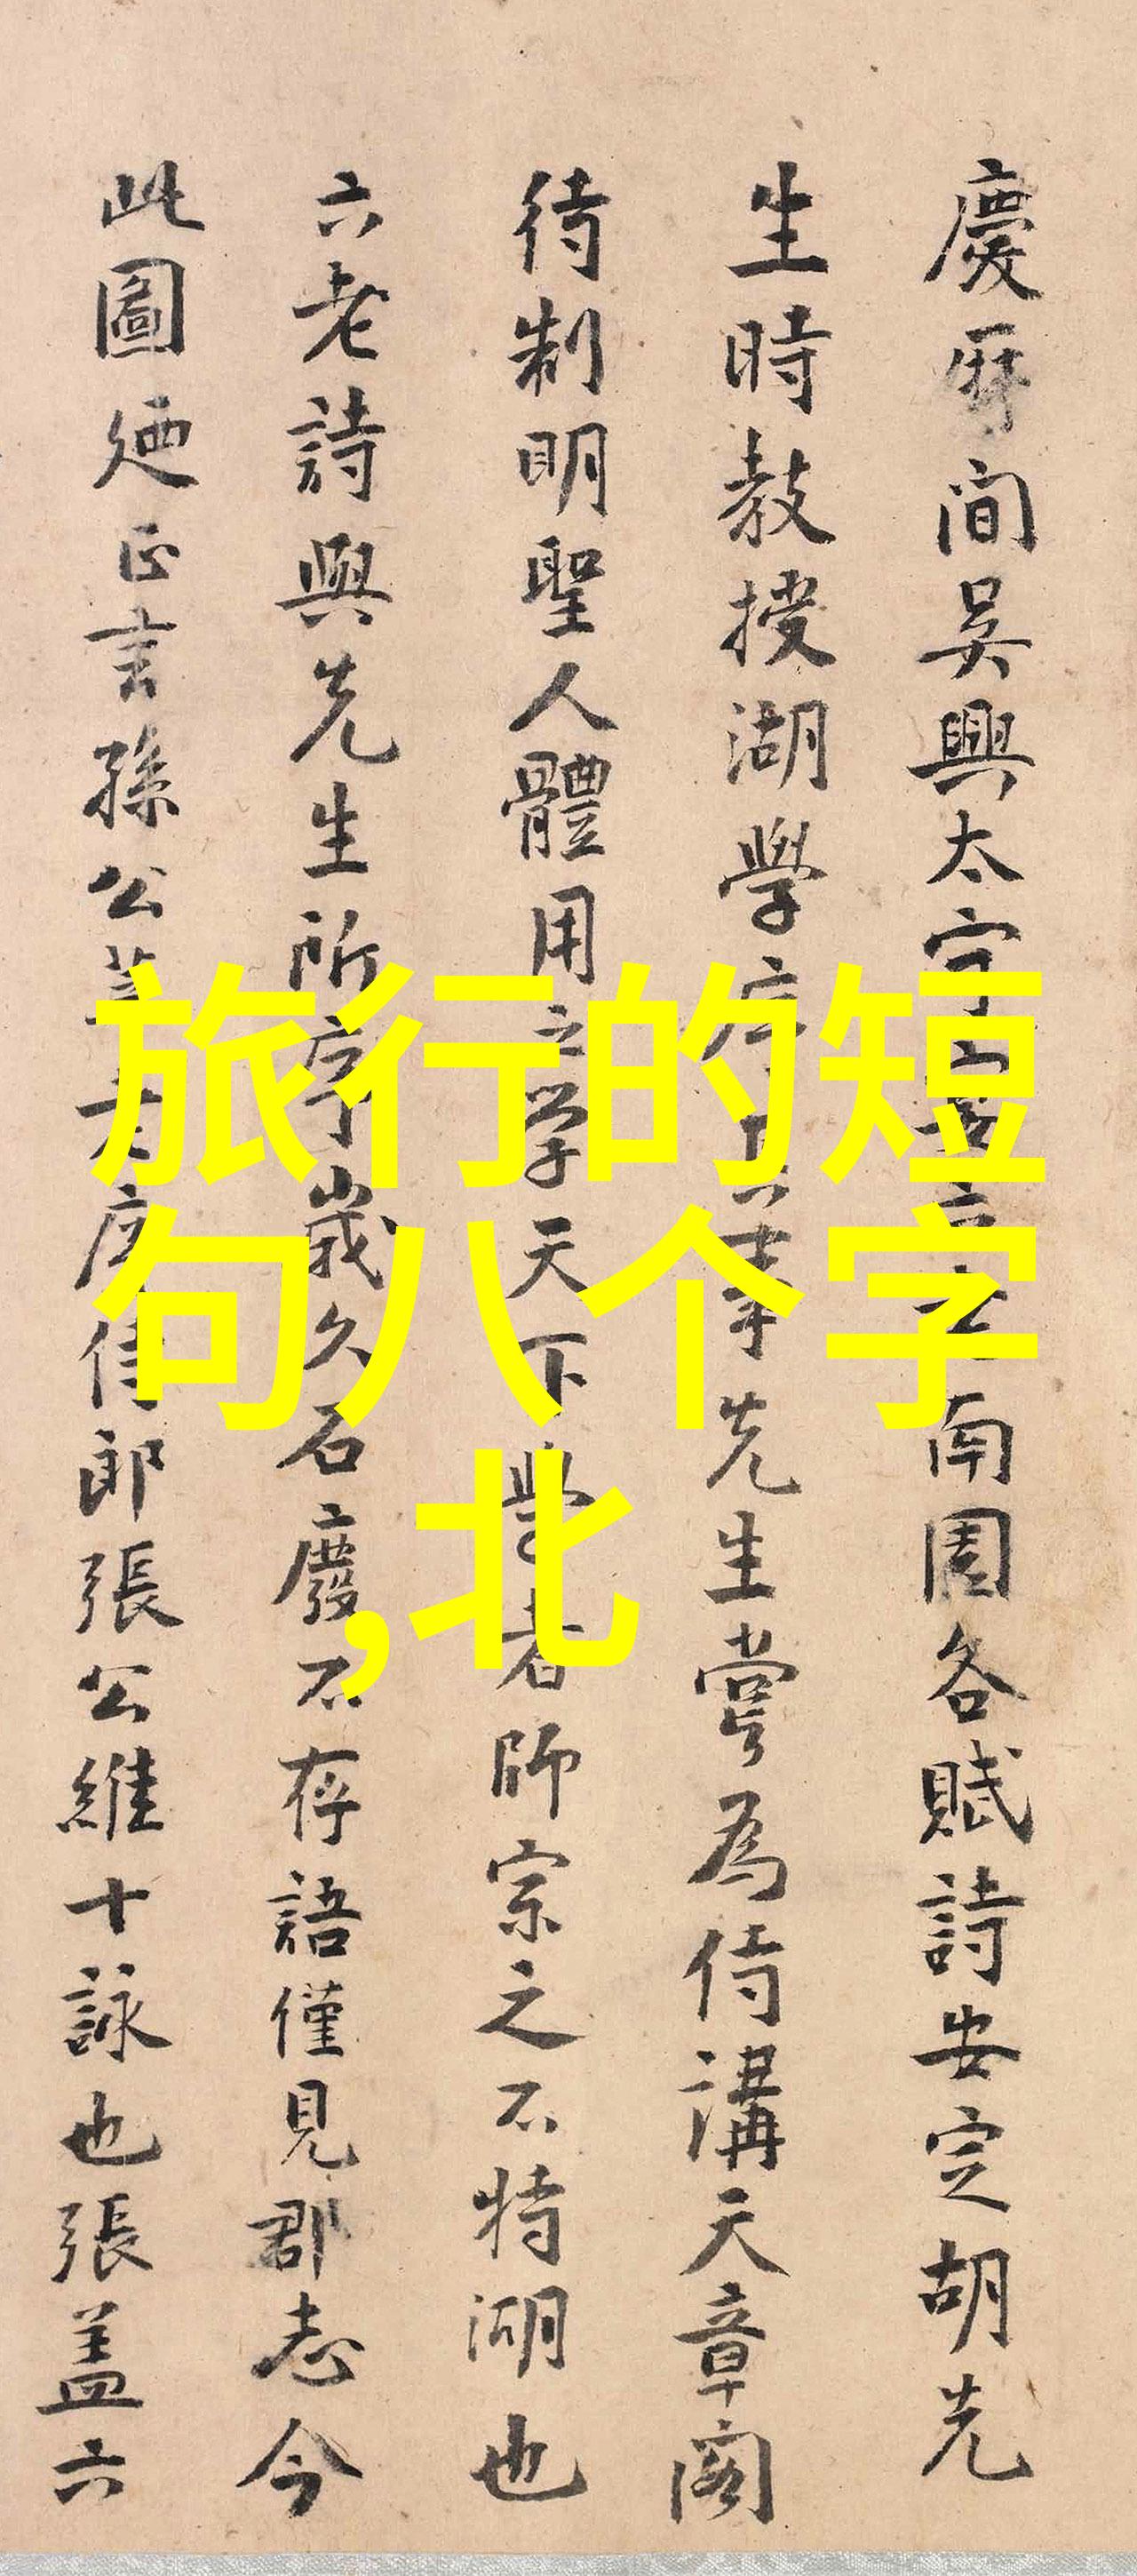 慶曆間吳興太守馬六老於南園各賦詩安定胡先
生時教授湖學序其事先生嘗為侍講天章閣
待制明聖人體用之學天下學者師宗之不特湖也
六老詩與先生所序歲久石廢不存語僅見郡志今
此圖廼正言孫公莘老序侍郎張公維十詠也張蓋六
旅行的短
句八个字
,北